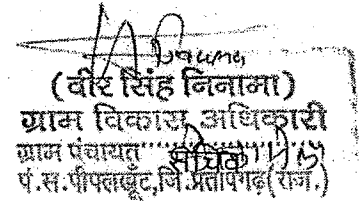 (वीर सिंह निनामा)
ग्राम विकास अधिकारी
ग्राम पंचायत सचिव
पं.स.पीपलखूँट,जि.प्रतापगढ़(राज.)